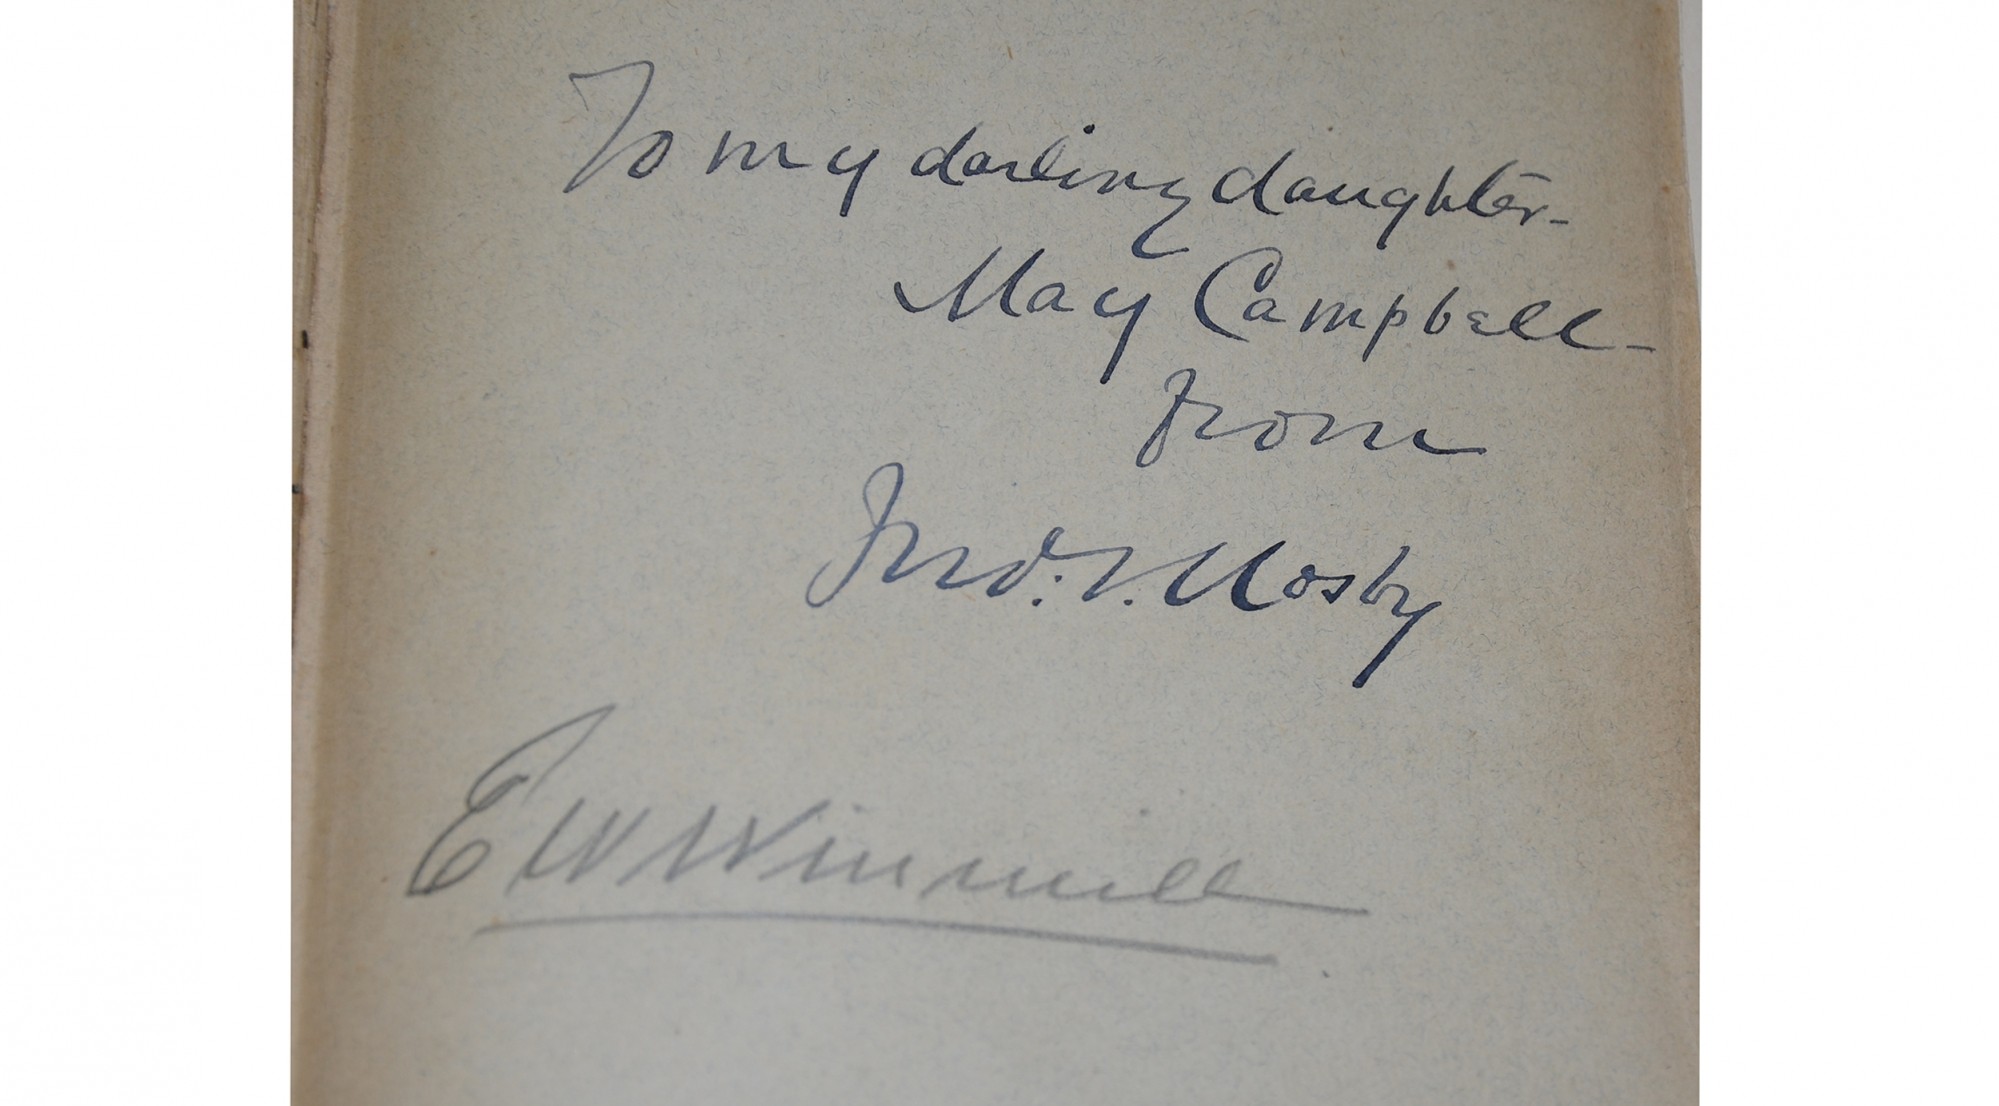 To my darling daughter-
May Campbell-
from
Jno. S. Mosby
E W Winmill